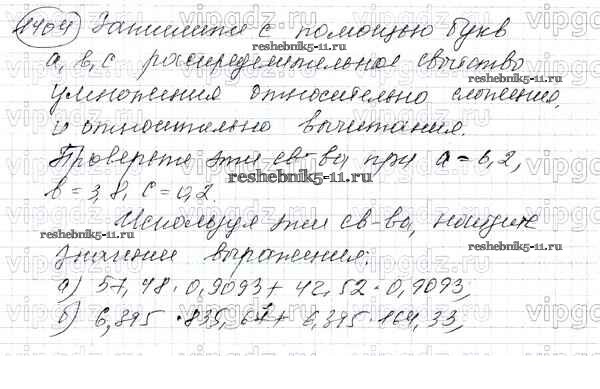 1404 Запишите с помощью букв
a, b, c распределительное свойство
умножения относительно сложения
и относительно вычитания.
Проверьте эти св-ва при a = 6,2,
b = 3,8, c = 0,2.
Используя эти св-ва, найдите
значение выражения:
а) 57,48 · 0,9093 + 42,52 · 0,9093,
б) 6,395 · 835,67 + 6,395 · 164,33,